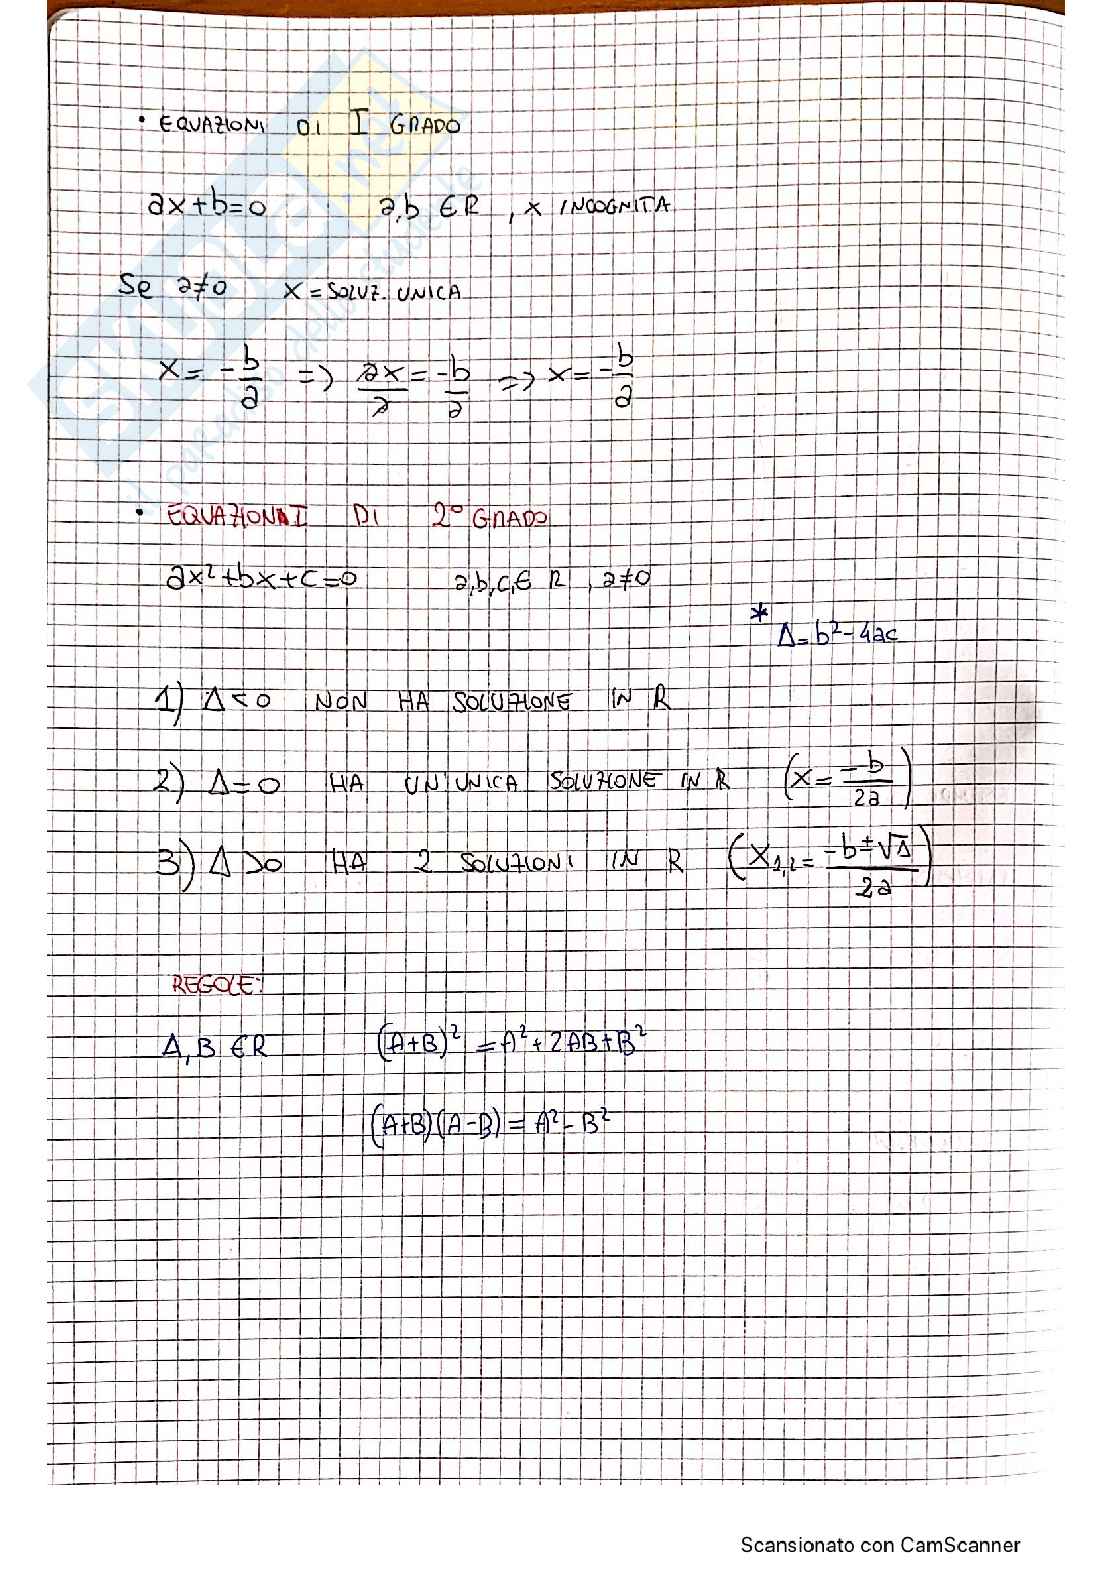 • EQUAZIONI DI I GRADO
ax+b=0 a,b ∈R , x INCOGNITA
Se a≠0 x = SOLUZ. UNICA
x = -b/a => ax/a = -b/a => x = -b/a
• EQUAZIONI DI 2° GRADO
ax²+bx+c=0 a,b,c,∈ R , a≠0
* Δ=b²-4ac
1) Δ<0 NON HA SOLUZIONE IN R
2) Δ=0 HA UN'UNICA SOLUZIONE IN R (x = -b/2a)
3) Δ>0 HA 2 SOLUZIONI IN R (x1,2 = -b±√Δ/2a)
REGOLE:
A,B ∈R (A+B)² = A²+2AB+B²
(A+B)(A-B) = A²-B²
SKUOLA.net
il paradiso dello studente
Scansionato con CamScanner